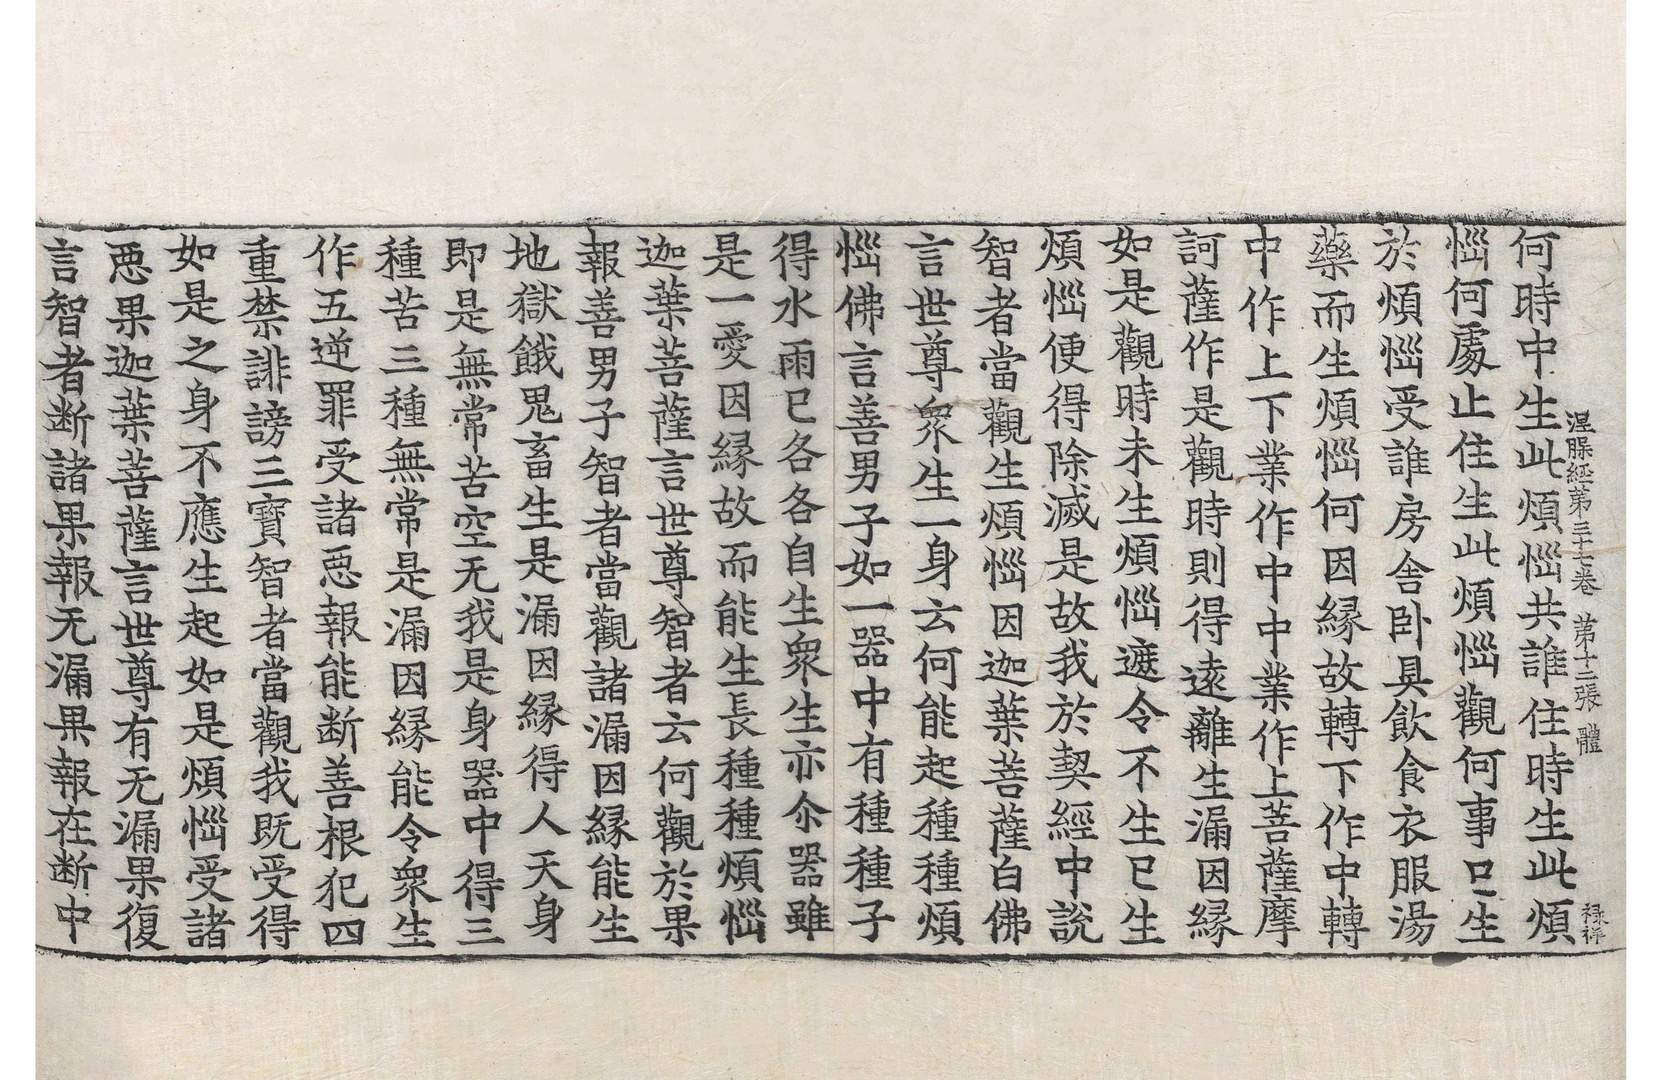 涅槃經第三十七卷　第十二張　體
禄祥
何時中生此煩惱共誰住時生此煩
惱何處止住生此煩惱觀何事已生
於煩惱受誰房舍卧具飲食衣服湯
藥而生煩惱何因縁故轉下作中轉
中作上下業作中中業作上菩薩摩
訶薩作是觀時則得遠離生漏因縁
如是觀時未生煩惱遮令不生已生
煩惱便得除滅是故我於契經中說
智者當觀生煩惱因迦葉菩薩白佛
言世尊衆生一身云何能起種種煩
惱佛言善男子如一器中有種種子
得水雨已各各自生衆生亦尒器雖
是一愛因縁故而能生長種種煩惱
迦葉菩薩言世尊智者云何觀於果
報善男子智者當觀諸漏因縁能生
地獄餓鬼畜生是漏因縁得人天身
即是無常苦空无我是身器中得三
種苦三種無常是漏因縁能令衆生
作五逆罪受諸惡報能断善根犯四
重禁誹謗三寶智者當觀我既受得
如是之身不應生起如是煩惱受諸
惡果迦葉菩薩言世尊有无漏果復
言智者断諸果報无漏果報在断中